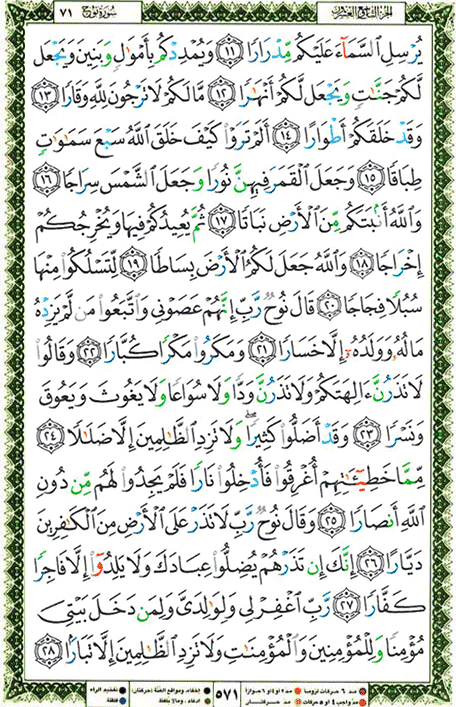 ٧١ سُورَةُ نُوحٍ الجزء التاسع والعشرون
يُرْسِلِ السَّمَآءَ عَلَيْكُم مِّدْرَارًا ١١ وَيُمْدِدْكُم بِأَمْوَٰلٍ وَبَنِينَ وَيَجْعَل
لَّكُمْ جَنَّٰتٍ وَيَجْعَل لَّكُمْ أَنْهَٰرًا ١٢ مَّا لَكُمْ لَا تَرْجُونَ لِلَّهِ وَقَارًا ١٣
وَقَدْ خَلَقَكُمْ أَطْوَارًا ١٤ أَلَمْ تَرَوْا۟ كَيْفَ خَلَقَ ٱللَّهُ سَبْعَ سَمَٰوَٰتٍ
طِبَاقًا ١٥ وَجَعَلَ ٱلْقَمَرَ فِيهِنَّ نُورًا وَجَعَلَ ٱلشَّمْسَ سِرَاجًا ١٦
وَٱللَّهُ أَنۢبَتَكُم مِّنَ ٱلْأَرْضِ نَبَاتًا ١٧ ثُمَّ يُعِيدُكُمْ فِيهَا وَيُخْرِجُكُمْ
إِخْرَاجًا ١٨ وَٱللَّهُ جَعَلَ لَكُمُ ٱلْأَرْضَ بِسَاطًا ١٩ لِّتَسْلُكُوا۟ مِنْهَا
سُبُلًا فِجَاجًا ٢٠ قَالَ نُوحٌ رَّبِّ إِنَّهُمْ عَصَوْنِى وَٱتَّبَعُوا۟ مَن لَّمْ يَزِدْهُ
مَالُهُۥ وَوَلَدُهُۥٓ إِلَّا خَسَارًا ٢١ وَمَكَرُوا۟ مَكْرًا كُبَّارًا ٢٢ وَقَالُوا۟
لَا تَذَرُنَّ ءَالِهَتَكُمْ وَلَا تَذَرُنَّ وَدًّا وَلَا سُوَاعًا وَلَا يَغُوثَ وَيَعُوقَ
وَنَسْرًا ٢٣ وَقَدْ أَضَلُّوا۟ كَثِيرًا ۖ وَلَا تَزِدِ ٱلظَّٰلِمِينَ إِلَّا ضَلَٰلًا ٢٤
مِّمَّا خَطِيٓـَٰٔتِهِمْ أُغْرِقُوا۟ فَأُدْخِلُوا۟ نَارًا فَلَمْ يَجِدُوا۟ لَهُم مِّن دُونِ
ٱللَّهِ أَنصَارًا ٢٥ وَقَالَ نُوحٌ رَّبِّ لَا تَذَرْ عَلَى ٱلْأَرْضِ مِنَ ٱلْكَٰفِرِينَ
دَيَّارًا ٢٦ إِنَّكَ إِن تَذَرْهُمْ يُضِلُّوا۟ عِبَادَكَ وَلَا يَلِدُوٓا۟ إِلَّا فَاجِرًا
كَفَّارًا ٢٧ رَّبِّ ٱغْفِرْ لِى وَلِوَٰلِدَىَّ وَلِمَن دَخَلَ بَيْتِىَ
مُؤْمِنًا وَلِلْمُؤْمِنِينَ وَٱلْمُؤْمِنَٰتِ وَلَا تَزِدِ ٱلظَّٰلِمِينَ إِلَّا تَبَارًۢا ٢٨
مد ٦ حركات لزوماً مد ٢ او ٤ او ٦ جوازاً ٥٧١ إخفاء، ومواقع الغنة (حركتان) تفخيم الراء
مد واجب ٤ او ٥ حركات مد حركتان ادغام، وما لا يلفظ قلقلة